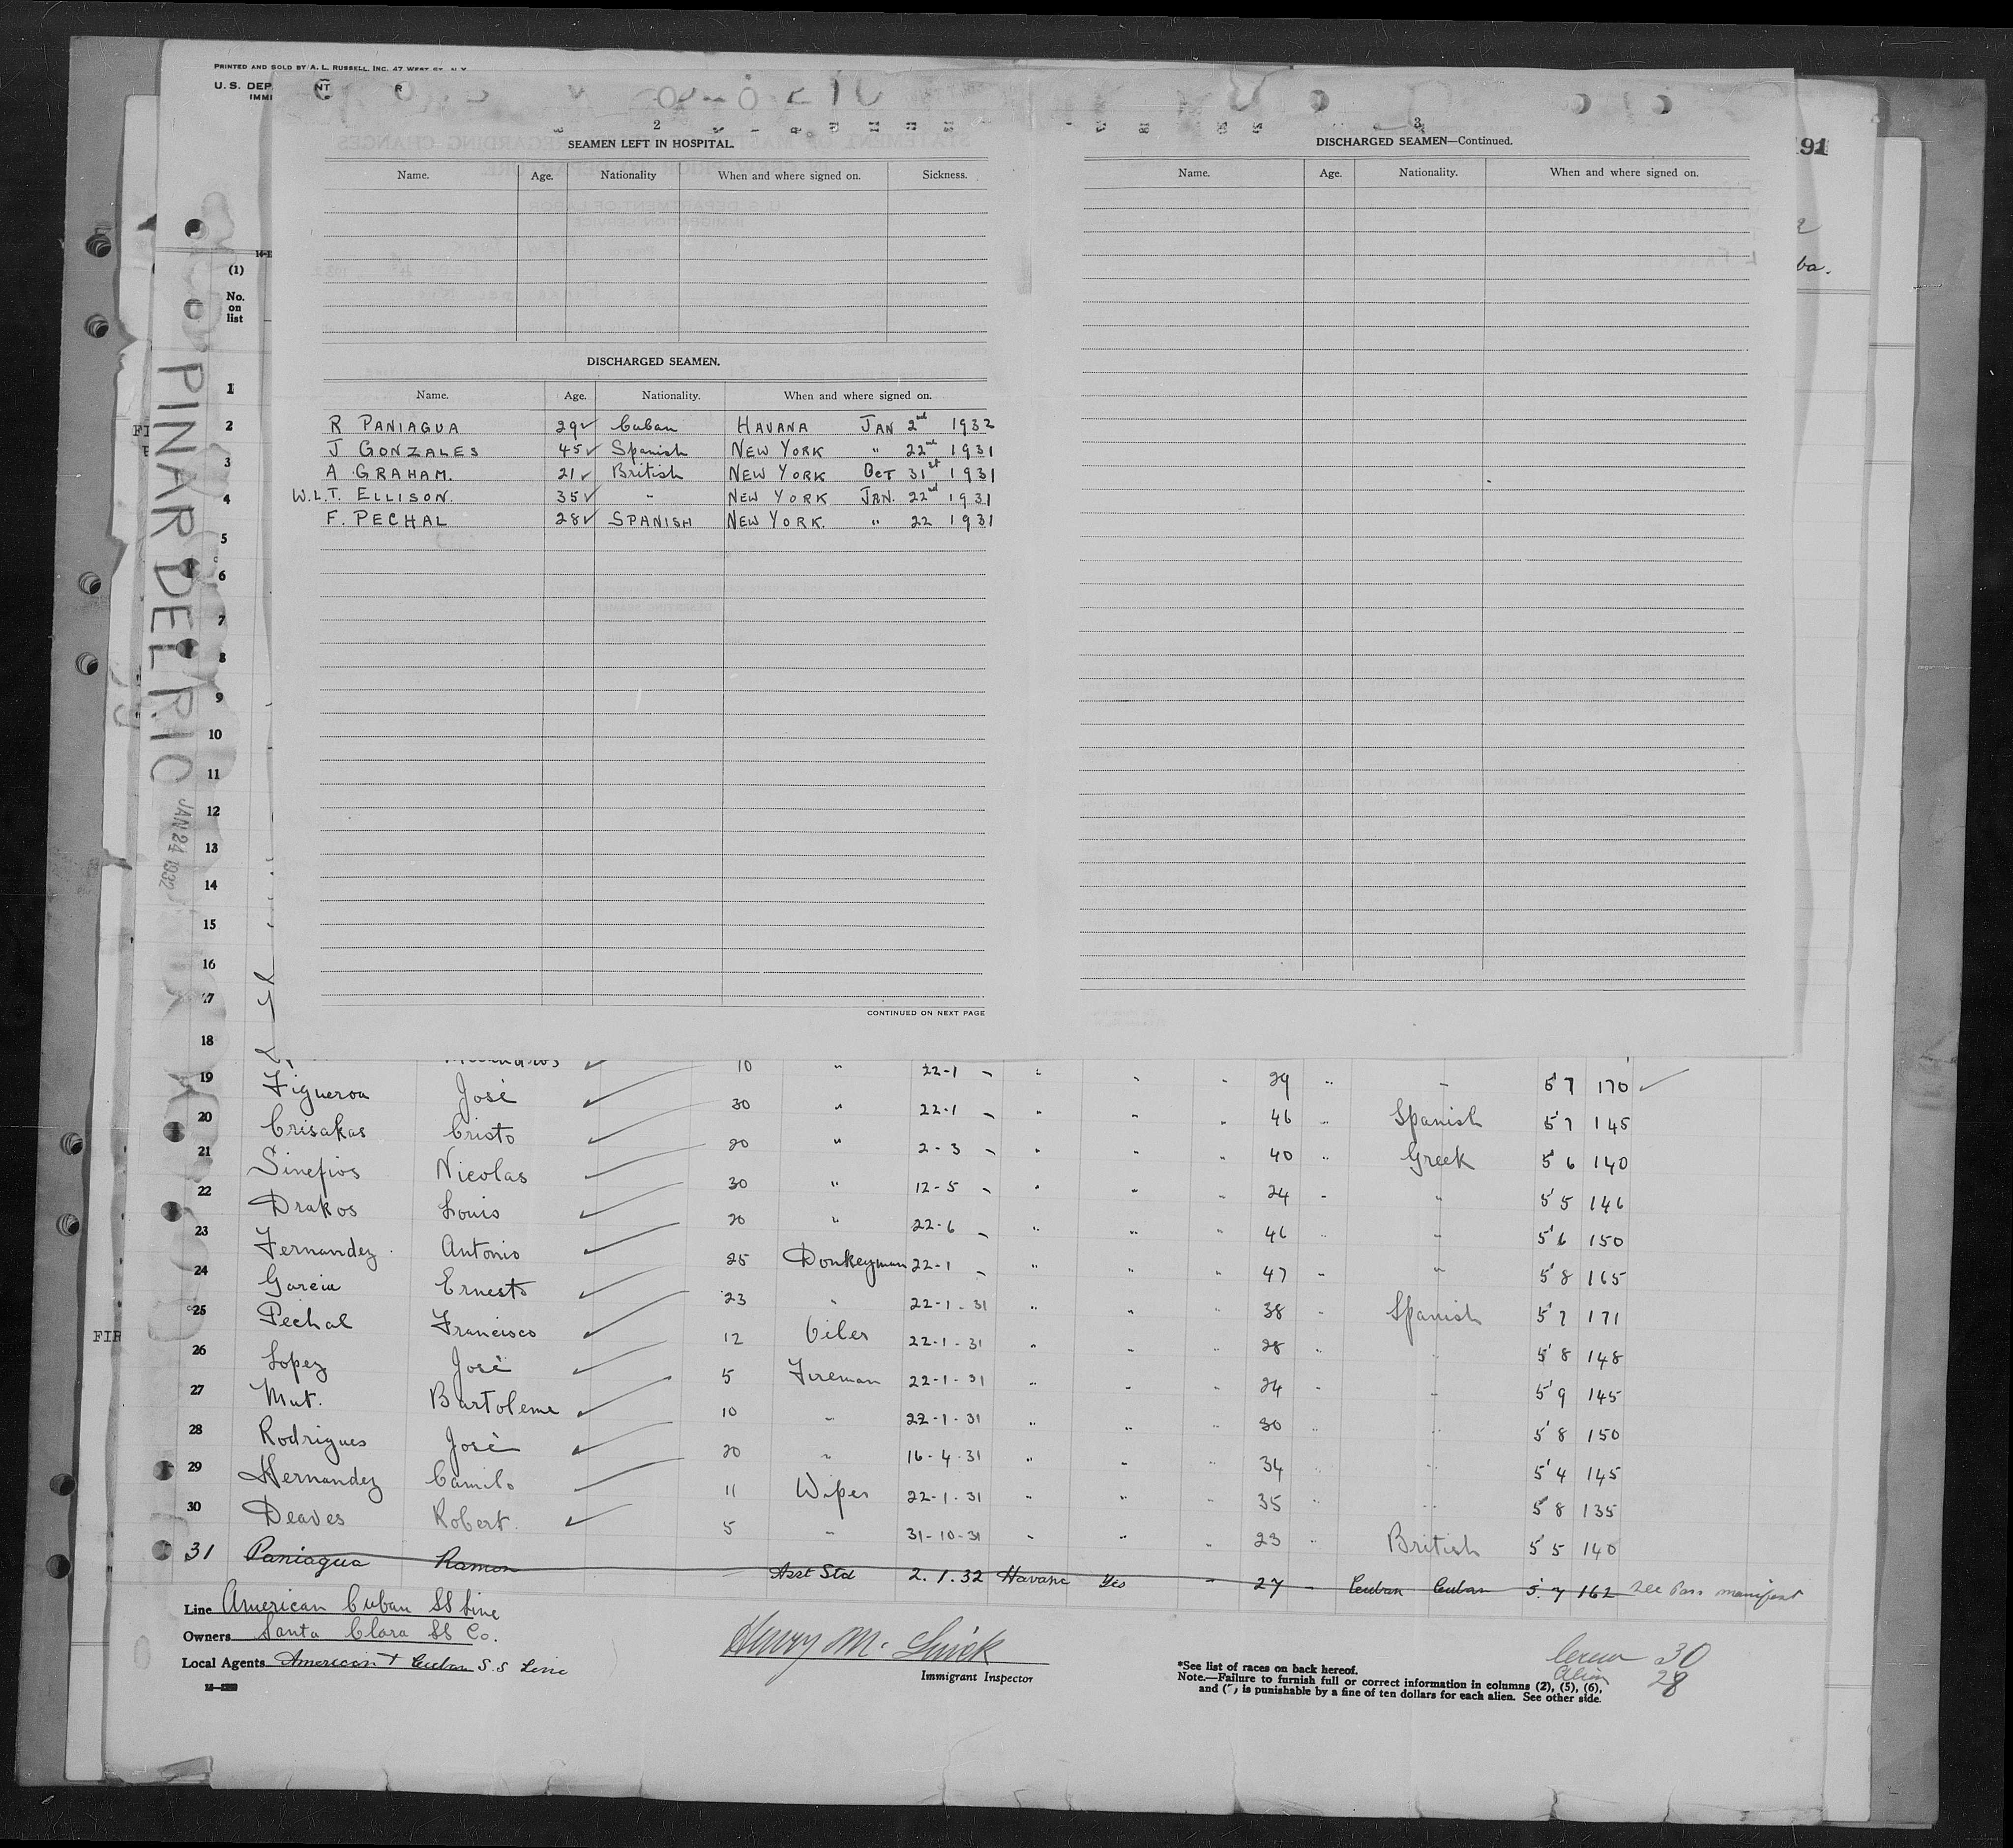 PRINTED AND SOLD BY A. L. RUSSELL, INC. 47 WEST ST. N.Y.
U. S. DEP
IMMI
191
ba.
(1)
No.
on
list
PINAR DEL RIO
JAN 24 1932
2
SEAMEN LEFT IN HOSPITAL.
Name. Age. Nationality When and where signed on. Sickness.
DISCHARGED SEAMEN.
Name. Age. Nationality. When and where signed on.
R PANIAGUA 29 Cuban HAVANA JAN 2nd 1932
J GONZALES 45 Spanish NEW YORK " 22nd 1931
A GRAHAM. 21 British NEW YORK OCT 31st 1931
W.L.T. ELLISON. 35 " NEW YORK JAN. 22nd 1931
F. PECHAL 28 SPANISH NEW YORK. " 22 1931
CONTINUED ON NEXT PAGE
3
DISCHARGED SEAMEN—Continued.
Name. Age. Nationality. When and where signed on.
1
2
3
4
5
6
7
8
9
10
11
12
13
14
15
16
17
18
10 " 22-1 - " " " 29 " - 5'7 170
19 Figueroa José 30 " 22-1 - " " " 46 " Spanish 5'7 145
20 Crisakas Cristo 20 " 2-3 - " " " 40 " Greek 5 6 140
21 Sinefios Nicolas 30 " 12-5 - " " " 24 " " 5'5 146
22 Drakos Louis 20 " 22-6 - " " " 46 " " 5'6 150
23 Fernandez Antonio 25 Donkeyman 22-1 - " " " 47 " " 5'8 165
24 Garcia Ernesto 23 " 22-1-31 " " " 38 " Spanish 5'7 171
25 Pechal Francisco 12 Oiler 22-1-31 " " " 28 " " 5'8 148
26 Lopez José 5 Fireman 22-1-31 " " " 24 " " 5'9 145
27 Mut. Bartoleme 10 " 22-1-31 " " " 30 " " 5'8 150
28 Rodrigues José 20 " 16-4-31 " " " 34 " " 5'4 145
29 Hernandez Camilo 11 Wiper 22-1-31 " " " 35 " " 5'8 135
30 Deaves Robert. 5 " 31-10-31 " " " 23 " British 5 5 140
31 Paniagua Ramon Asst Std 2.1.32 Havana Yes " 27 - Cuban Cuban 5.7 162 See Pass manifest
Line American Cuban SS Line
Owners Santa Clara SS Co.
Local Agents American & Cuban S.S Line
Immigrant Inspector
*See list of races on back hereof.
Note.—Failure to furnish full or correct information in columns (2), (5), (6),
and (7) is punishable by a fine of ten dollars for each alien. See other side.
Crew 30
Alien 28
FIR